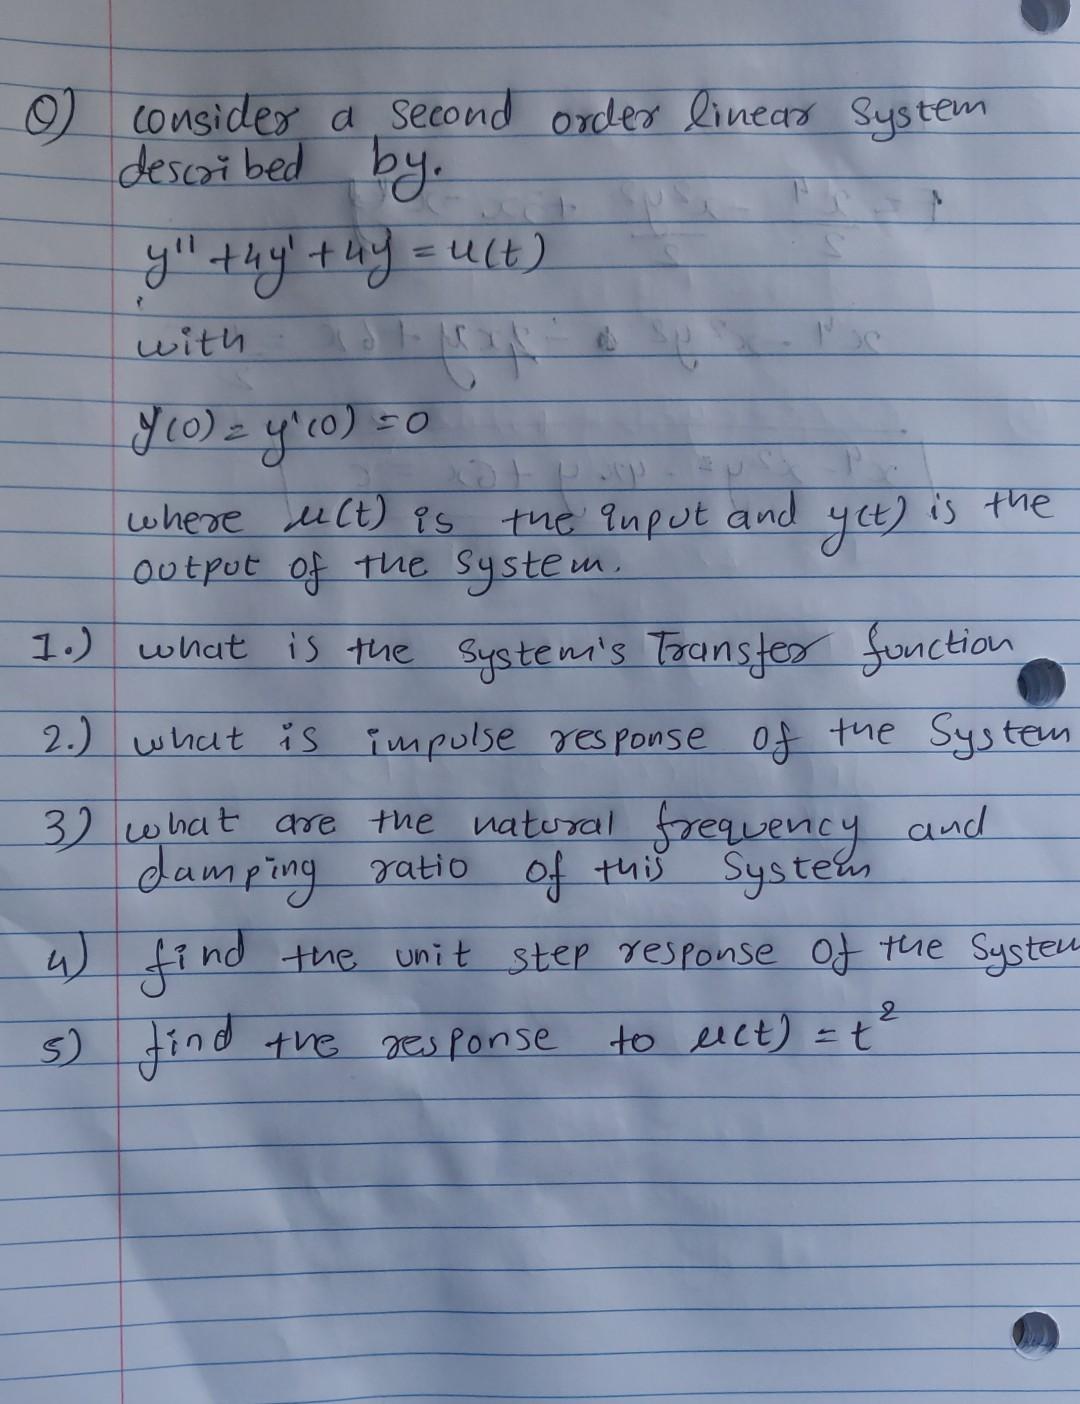 Q) consider a second order linear system
described by.
y'' + 4y' + 4y = u(t)
with
y(0) = y'(0) = 0
where u(t) is the input and y(t) is the
output of the system.
1.) what is the system's Transfer function
2.) what is impulse response of the System
3) what are the natural frequency and
damping ratio of this System
4) find the unit step response of the System
5) find the response to u(t) = t²